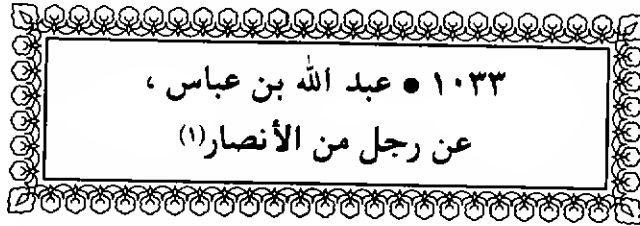 ١٠٣٣ ● عبد الله بن عباس ،
عن رجل من الأنصار(١)